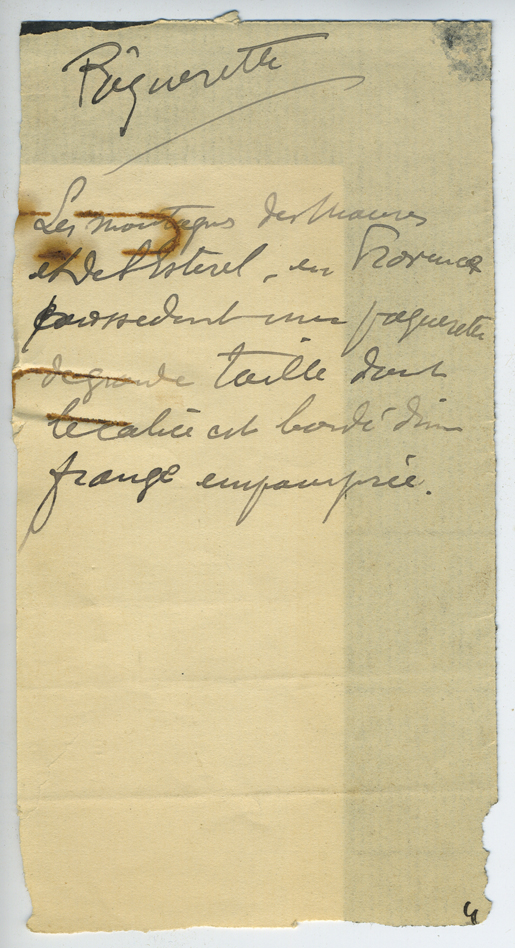 Pâquerette
Les montagnes des Maures
et de l'Esterel, en Provence
possèdent une paquerette
de grande taille dont
le calice est bordé d'une
frange empourprée.
4